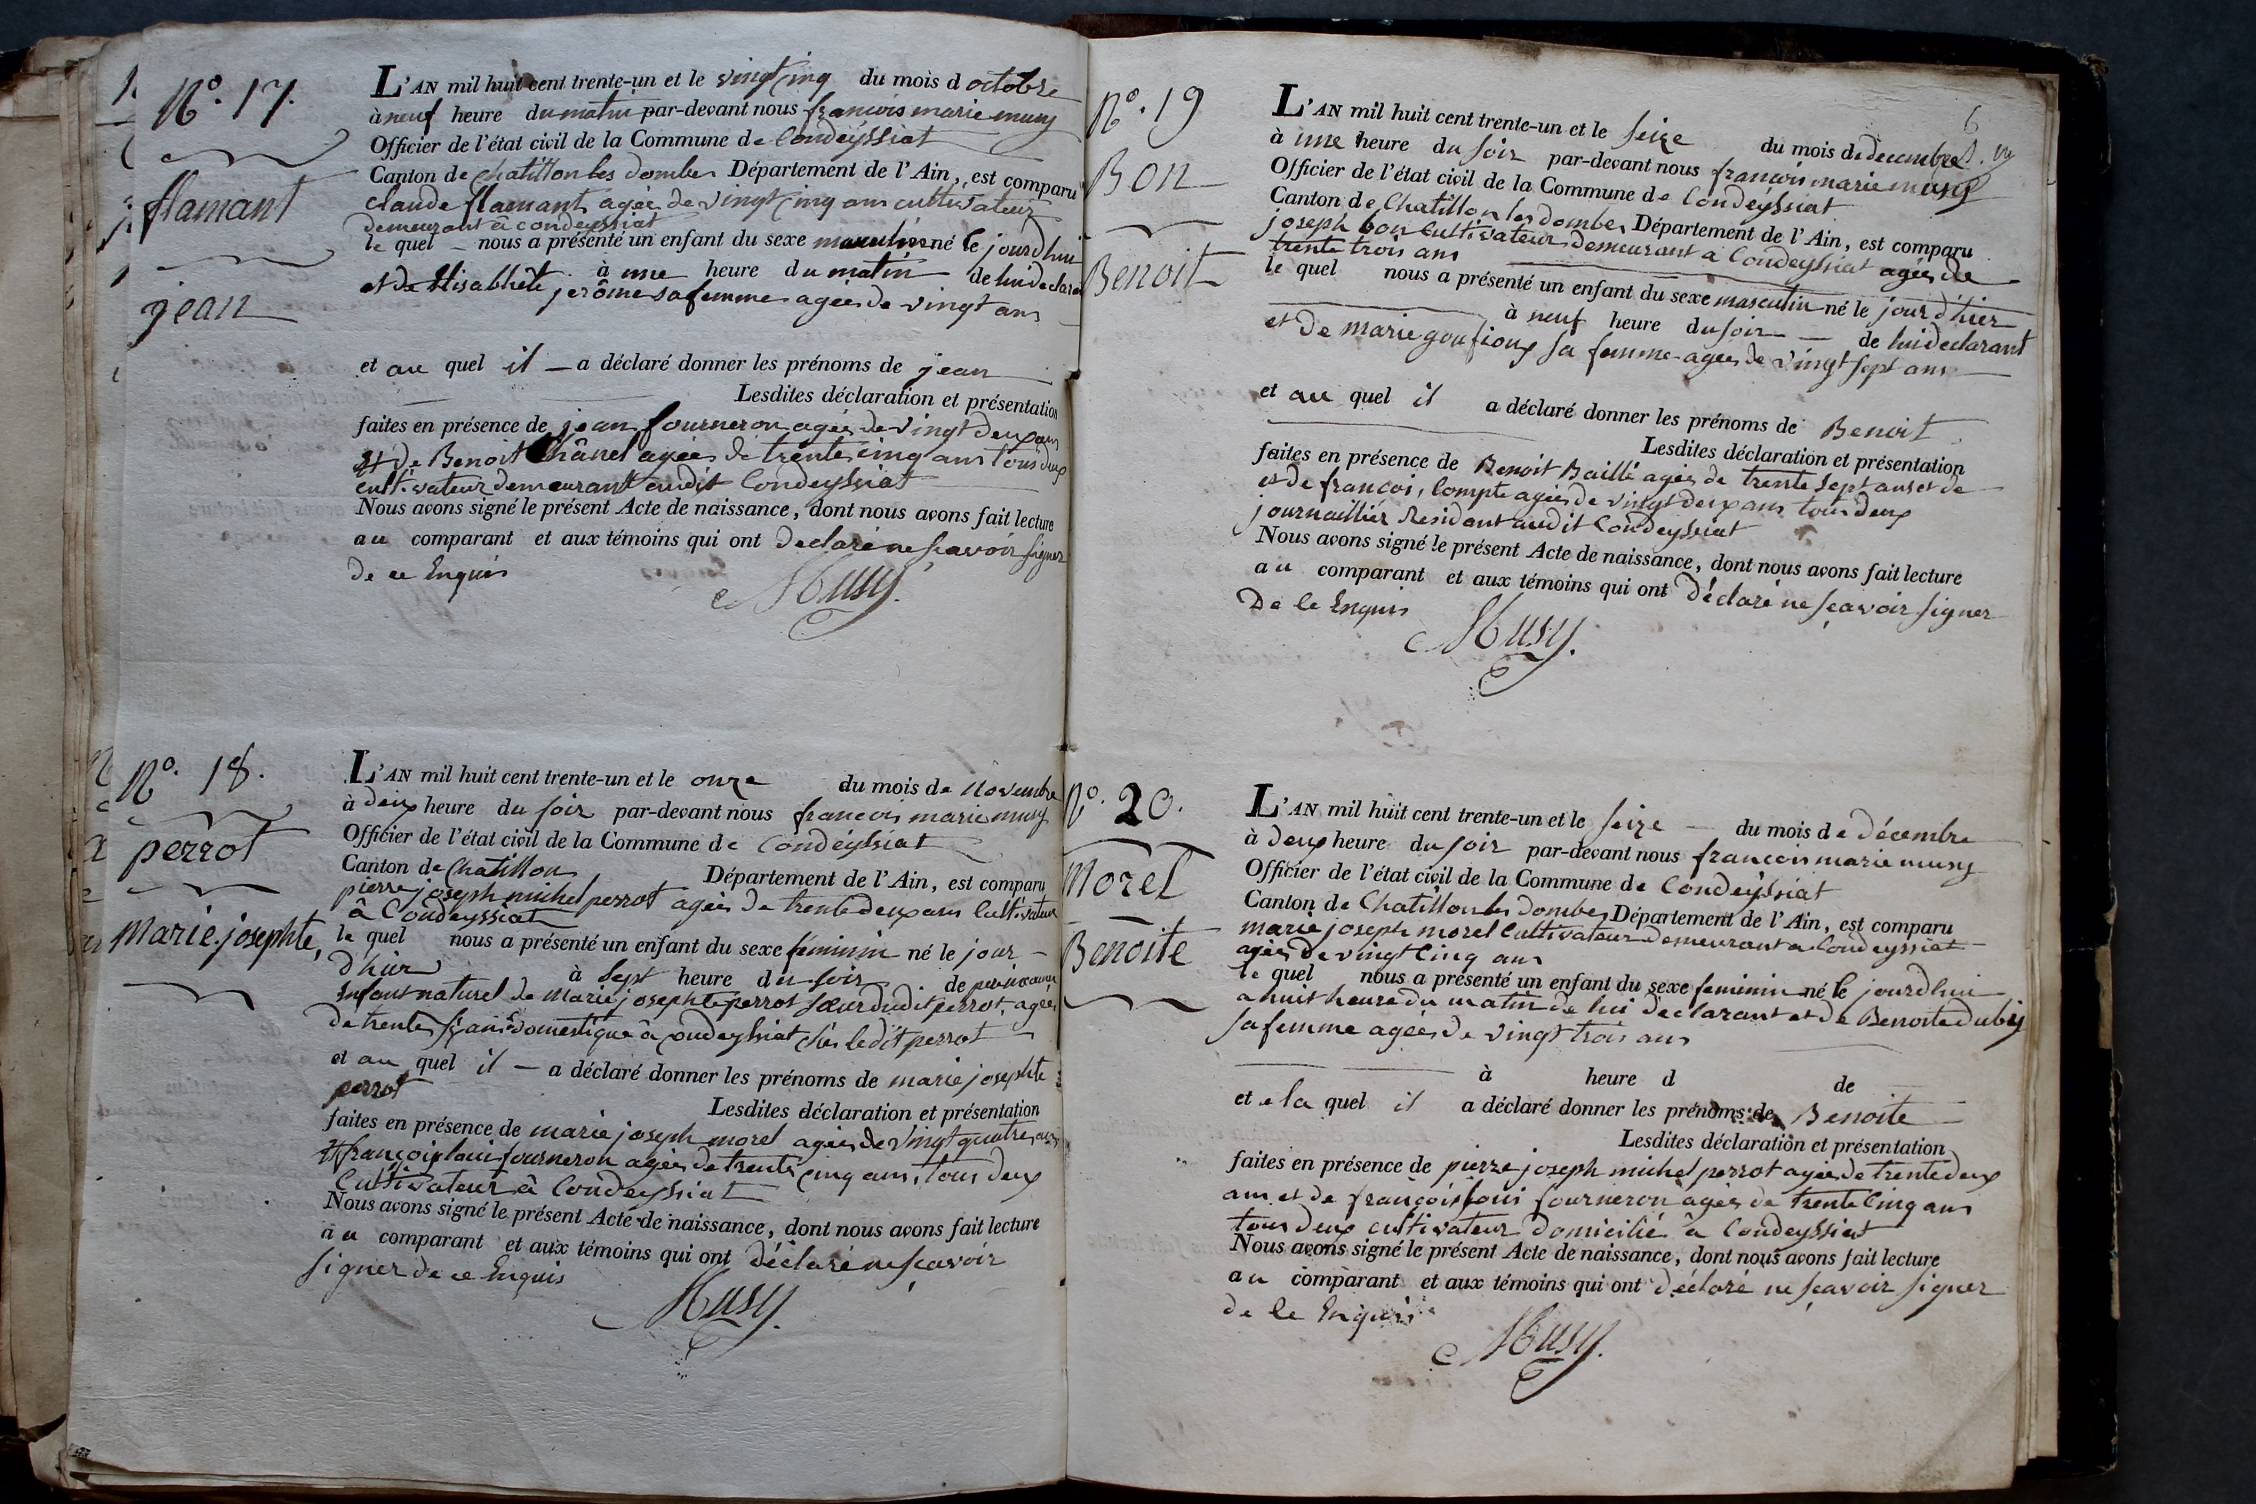 N.º 17.
flamant
jean
L'AN mil huit cent trente-un et le vingt cinq du mois d octobre
à neuf heure du matin par-devant nous françois marie musy
Officier de l'état civil de la Commune de Condeyssiat
Canton de chatillon les dombes Département de l'Ain, est comparu
claude flamant agée de vingt cinq ans cultivateur
demeurant â condeyssiat
le quel nous a présenté un enfant du sexe masculin né le jourdhui
à une heure du matin de lui declarant
et de Elisabhete jerôme sa femme agée de vingt ans
et au quel il a déclaré donner les prénoms de jean
Lesdites déclaration et présentation
faites en présence de jean fourneron agée de vingt deux ans
et de Benoit Chânel agée de trente cinq ans tous deux
cultivateur demeurant audit Condeyssiat
Nous avons signé le présent Acte de naissance, dont nous avons fait lecture
au comparant et aux témoins qui ont declaré ne sçavoir signer
de ce Enquis
Musy.
N.º 18.
perrot
Marie josephte,
L'AN mil huit cent trente-un et le onze du mois de Novembre
à deux heure du soir par-devant nous françois marie musy
Officier de l'état civil de la Commune de Condéyssiat
Canton de Chatillon Département de l'Ain, est comparu
pierre joseph michel perrot agée de trente deux ans Cultivateur
â Condeyssiat
le quel nous a présenté un enfant du sexe feminin né le jour
d'hier à sept heure du soir de
Enfant naturel de Marie josephte perrot sœur dudit perrot, agée
de trente six ans domestique â condeyssiat chés ledit perrot
et au quel il a déclaré donner les prénoms de marie josephte
perrot
Lesdites déclaration et présentation
faites en présence de marie joseph morel agée de vingt quatre ans
et françois loui fourneron agée de trente cinq ans, tous deux
Cultivateur â Condeyssiat
Nous avons signé le présent Acte de naissance, dont nous avons fait lecture
au comparant et aux témoins qui ont déclaré ne sçavoir
signer de ce Enquis
Musy.
6
N.º 19
Bon
Benoit
L'AN mil huit cent trente-un et le seize du mois de decembre
à une heure du soir par-devant nous françois marie musy
Officier de l'état civil de la Commune de Condéyssiat
Canton de Chatillon les dombes Département de l'Ain, est comparu
joseph bon Cultivateur demeurant a Condeyssiat agée de
trente trois ans
le quel nous a présenté un enfant du sexe masculin né le jour d'hier
à neuf heure du soir de lui declarant
et de marie sa femme agée de vingt sept ans
et au quel il a déclaré donner les prénoms de Benoit
Lesdites déclaration et présentation
faites en présence de Benoit Baillé agée de trente sept ans et de
et de françois, Compte agée de vingt deux ans tous deux
journaillier Residant audit Condeyssiat
Nous avons signé le présent Acte de naissance, dont nous avons fait lecture
au comparant et aux témoins qui ont déclaré ne sçavoir signer
De Ce Enquis
Musy.
N.º 20.
Morel
Benoite
L'AN mil huit cent trente-un et le seize du mois de décembre
à deux heure du soir par-devant nous françois marie musy
Officier de l'état civil de la Commune de Condéyssiat
Canton de Chatillon les dombes Département de l'Ain, est comparu
marie joseph morel Cultivateur demeurant a Condeyssiat
agée de vingt Cinq ans
le quel nous a présenté un enfant du sexe feminin né le jourdhui
a huit heure du matin de lui declarant et de Benoite duby
sa femme agée de vingt trois ans
à heure d de
et a la quel il a déclaré donner les prénoms de Benoite
Lesdites déclaration et présentation
faites en présence de pierre joseph michel perrot agée de trente deux
ans et de françois loui fourneron agée de trente Cinq ans
tous deux cultivateur domicilié â Condeyssiat
Nous avons signé le présent Acte de naissance, dont nous avons fait lecture
au comparant et aux témoins qui ont déclaré ne sçavoir signer
de Ce Enquis
Musy.